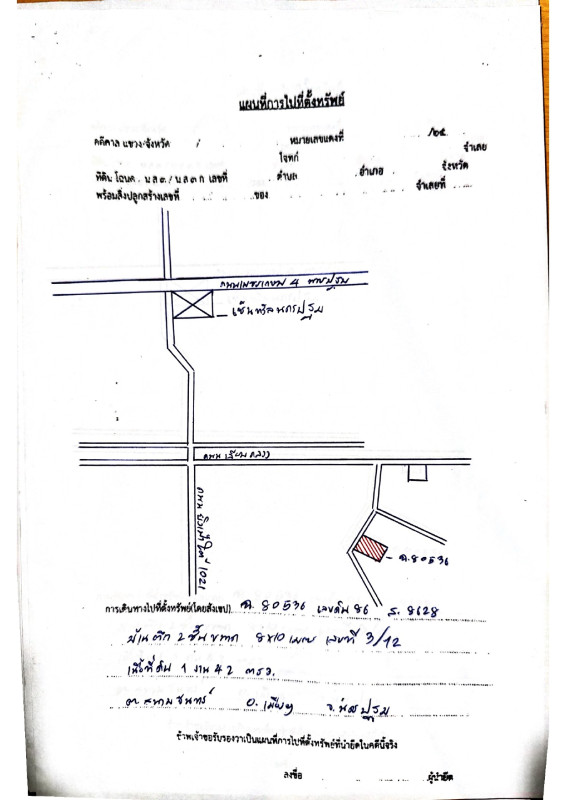 แผนที่การไปที่ตั้งทรัพย์
คดีศาล แขวง/จังหวัด หมายเลขแดงที่ /๒๕
โจทก์ จำเลย
ที่ดิน โฉนด น.ส.๓/น.ส.๓ ก เลขที่ ตำบล อำเภอ จังหวัด
พร้อมสิ่งปลูกสร้างเลขที่ ของ จำเลยที่
ถนนเพชรเกษม 4
เซ็นทรัลนครปฐม
ถนนเลียบคลอง
ถนน
ฉ. 80536
การเดินทางไปที่ตั้งทรัพย์(โดยสังเขป) ฉ. 80536 เลขดิน 86 ร. 8628
บ้านตึก 2 ชั้น ขนาด 8x10 เมตร เลขที่ 3/12
เนื้อที่ดิน 1 งาน 42 ตรว.
ต. สนามจันทร์ อ. เมืองฯ จ. นครปฐม
ข้าพเจ้าขอรับรองว่าเป็นแผนที่การไปที่ตั้งทรัพย์ที่นำยึดในคดีนี้จริง
ลงชื่อ ผู้นำยึด